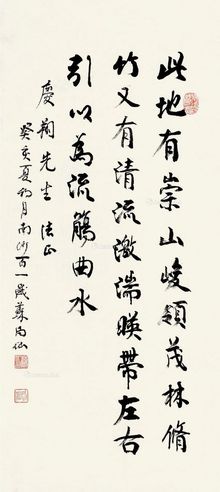 此地有崇山峻領茂林脩
竹又有清流激湍暎帶左右
引以為流觴曲水
慶賴先生 法正
癸亥夏初月南沙百一歲蘇局仙